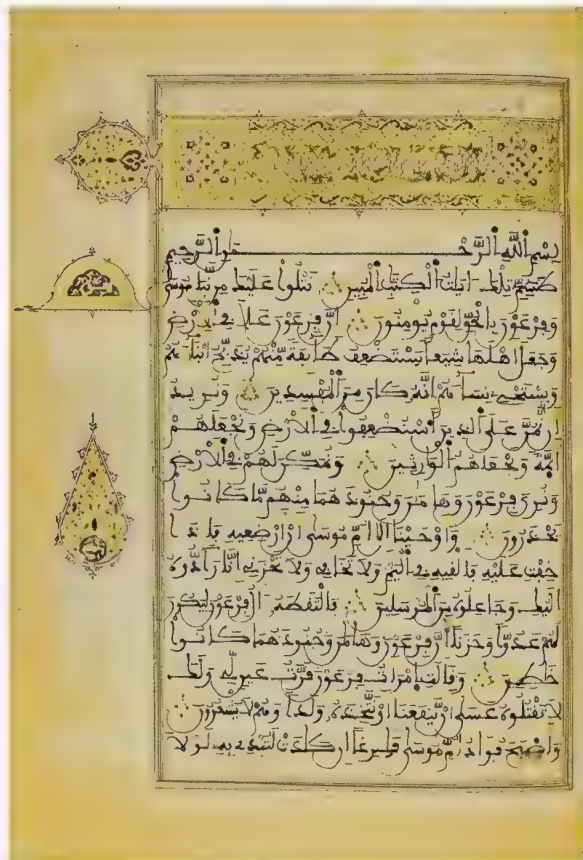 بسم الله الرحمن الرحيم
طسم تلك ايات الكتاب المبين نتلوا عليك من نبا موسى
وفرعون بالحق لقوم يومنون ان فرعون علا في الارض
وجعل اهلها شيعا يستضعف طائفة منهم يذبح ابناءهم
ويستحي نساءهم انه كان من المفسدين ونريد
ان نمن على الذين استضعفوا في الارض ونجعلهم
ايمة ونجعلهم الوارثين ونمكن لهم في الارض
ونري فرعون وهامن وجنودهما منهم ما كانوا
يحذرون واوحينا الى ام موسى ان ارضعيه فاذا
خفت عليه فالقيه في اليم ولا تخافي ولا تحزني انا رادوه
اليك وجاعلوه من المرسلين فالتقطه ال فرعون ليكون
لهم عدوا وحزنا ان فرعون وهامن وجنودهما كانوا
خطين وقالت امرات فرعون قرت عين لي ولك
لا تقتلوه عسى ان ينفعنا او نتخذه ولدا وهم لا يشعرون
واصبح فواد ام موسى فرغا ان كادت لتبدي به لولا